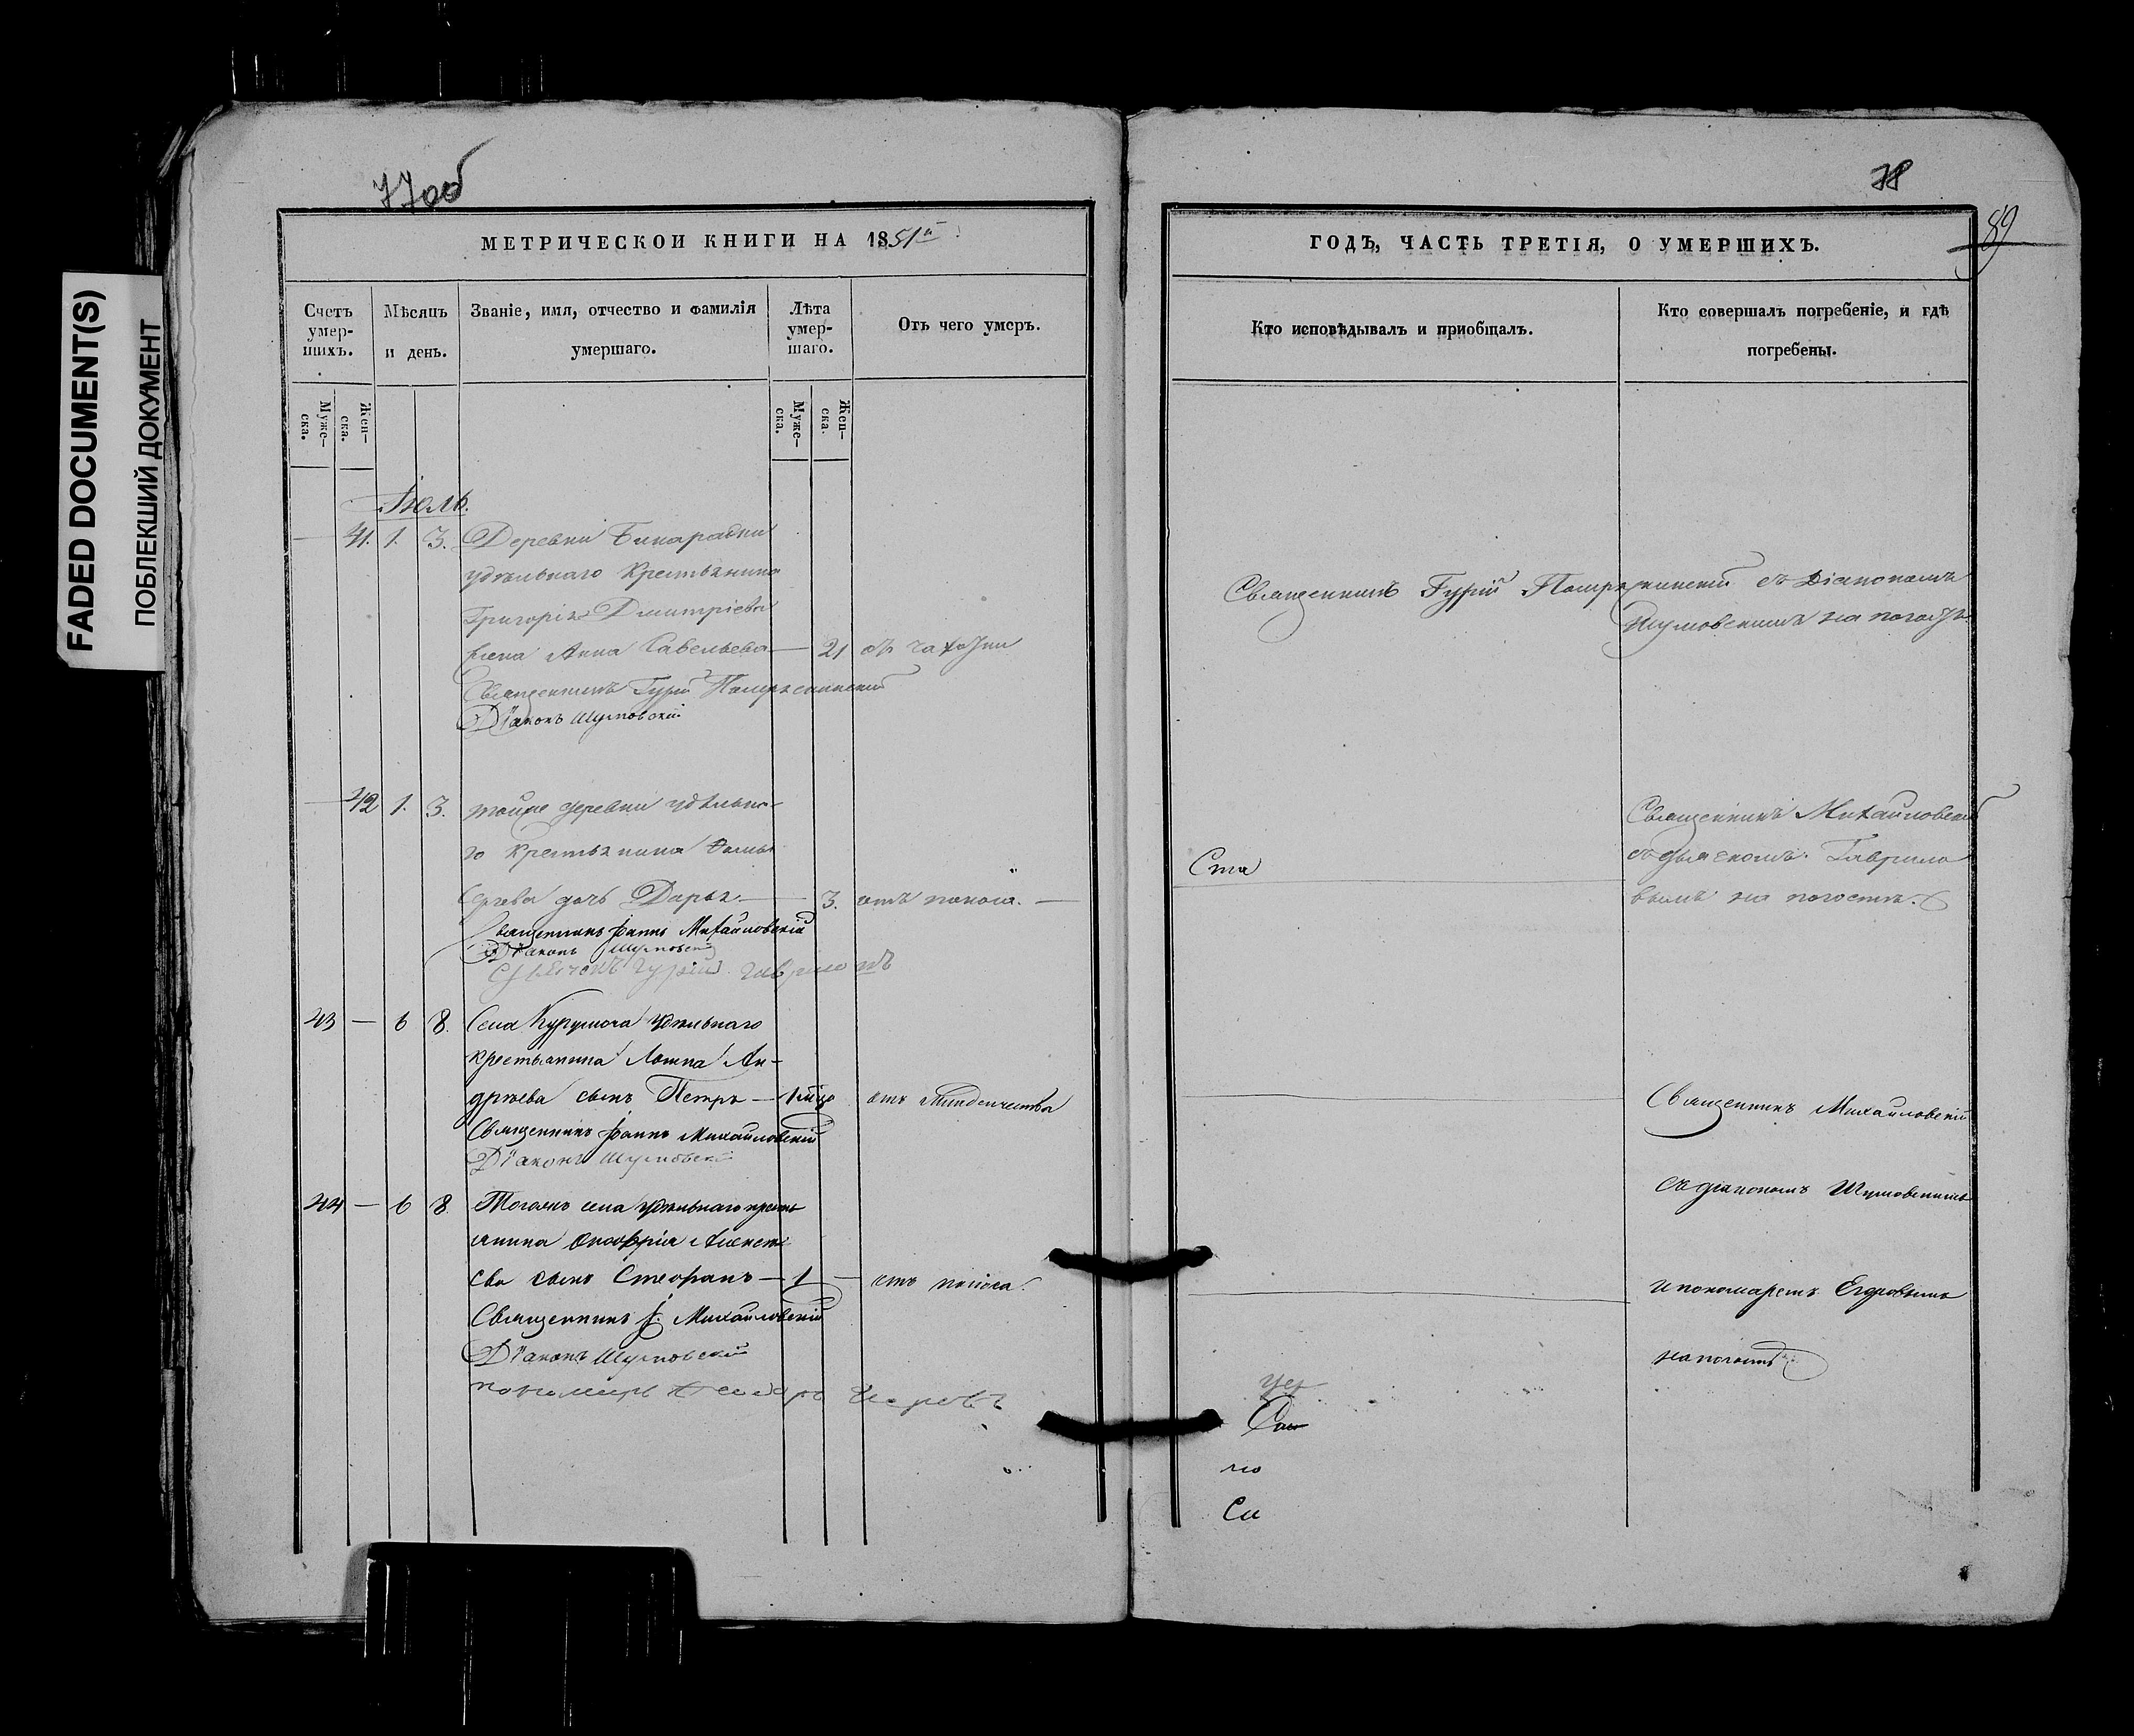 FADED DOCUMENT(S)
ПОБЛЕКШИЙ ДОКУМЕНТ
77об
МЕТРИЧЕСКОИ КНИГИ НА 1851й
Счетъ умер-шихъ.
Мѣсяцъ и день.
Званіе, имя, отчество и фамилія умершаго.
Лѣта умер-шаго.
Отъ чего умеръ.
Муже-ска.
Жен-ска.
Муже-ска.
Жен-ска.
Іюль.
41. 1. 3. Деревни Бинарадки
удѣльнаго Крестьянина
Григорія Дмитріева
жена Анна Савельева — 21 отъ чахотки
Священникъ Гурій
Діаконъ Шумовскій
42 1. 3. тойже деревни удѣльна-
го Крестьянина
дочь Дарья. — 3. отъ поноса. —
Священникъ Іоаннъ Михайловскій
Діаконъ Шумовскій
Гурій Гавриловъ
43 — 6 8. Села Курумоча удѣльнаго
крестьянина Логина Ан-
дрѣева сынъ Петръ — отъ младенчества
Священникъ Іоаннъ Михайловскій
Діаконъ Шумовскій
44 — 6 8. Тогожъ села удѣльнаго кресть
янина Онофрія Алексѣ
ева сынъ Стефанъ — 1 — отъ поноса.
Священникъ І. Михайловскій
Діаконъ Шумовскій
пономарь Егоровъ
78
89
ГОДЪ, ЧАСТЬ ТРЕТІЯ, О УМЕРШИХЪ.
Кто исповѣдывалъ и приобщалъ.
Кто совершалъ погребеніе, и гдѣ погребены.
Священникъ Гурій съ Діакономъ
Шумовскимъ на погостѣ
Священникъ Михайловскій
съ дьячкомъ Гаврило
вымъ на погостѣ.
Священникъ Михайловскій
съ діакономъ Шумовскимъ
и пономаремъ Егоровымъ
на погостѣ